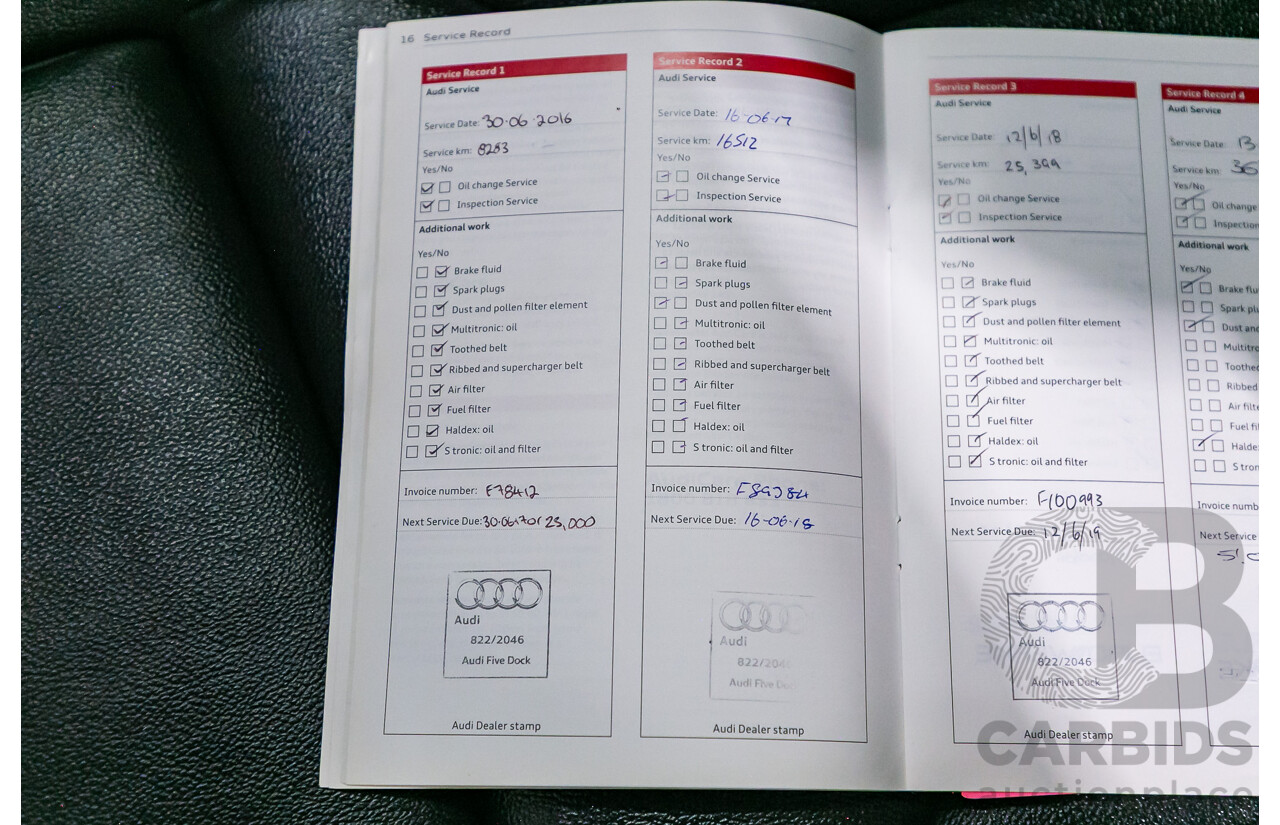 16 Service Record
Service Record 1
Audi Service
Service Date: 30.06.2016
Service km: 8253
Yes/No
Oil change Service
Inspection Service
Additional work
Yes/No
Brake fluid
Spark plugs
Dust and pollen filter element
Multitronic: oil
Toothed belt
Ribbed and supercharger belt
Air filter
Fuel filter
Haldex: oil
S tronic: oil and filter
Invoice number: F78412
Next Service Due: 25,000
Audi
822/2046
Audi Five Dock
Audi Dealer stamp
Service Record 2
Audi Service
Service Date: 16-06-17
Service km: 16512
Yes/No
Oil change Service
Inspection Service
Additional work
Yes/No
Brake fluid
Spark plugs
Dust and pollen filter element
Multitronic: oil
Toothed belt
Ribbed and supercharger belt
Air filter
Fuel filter
Haldex: oil
S tronic: oil and filter
Invoice number:
Next Service Due: 16-06-18
Audi
822/204
Audi Five
Audi Dealer stamp
Service Record 3
Audi Service
Service Date: 12/6/18
Service km: 25,399
Yes/No
Oil change Service
Inspection Service
Additional work
Yes/No
Brake fluid
Spark plugs
Dust and pollen filter element
Multitronic: oil
Toothed belt
Ribbed and supercharger belt
Air filter
Fuel filter
Haldex: oil
S tronic: oil and filter
Invoice number: F100993
Next Service Due: 12/6/19
Audi
822/2046
Audi Five Dock
Audi Dealer stamp
Service Record 4
Audi Service
Service Date:
Service km: 36
Yes/No
Oil change
Inspection
Additional work
Yes/No
Brake flu
Spark pl
Dust and
Multitro
Toothed
Ribbed
Air filt
Fuel fi
Halde
S tron
Invoice numb
Next Service
CB
CARBIDS
auctionplace